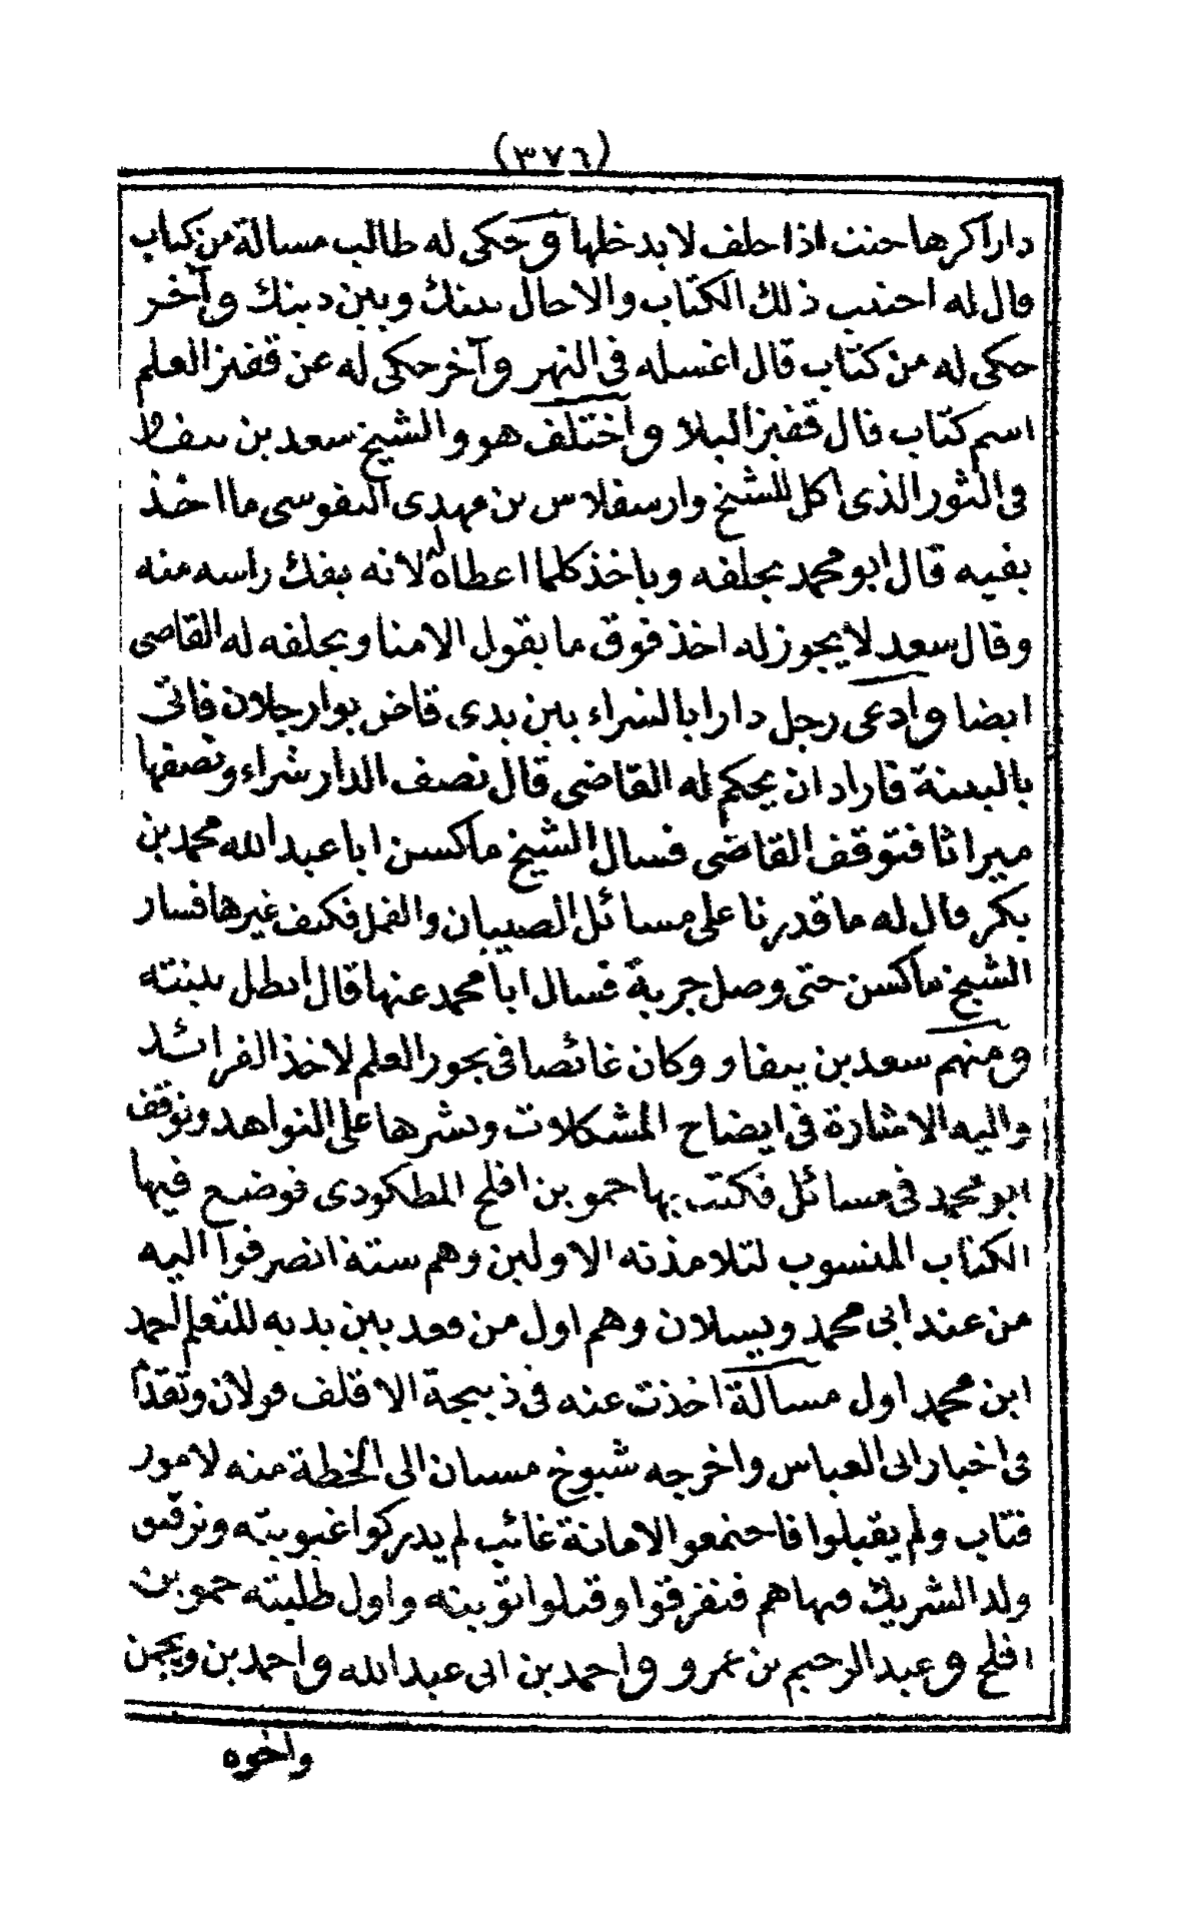 (٣٧٦)
دارا كرها حنث اذا حلف لا يدخلها وحكى له طالب مسالة من كتاب
قال له احتنب ذلك الكتاب والا حال بينك وبين دينك وآخر
حكى له من كتاب قال اغسله فى النهر وآخر حكى له عن قفيز العلم
اسم كتاب قال قفيز البلا واختلف هو والشيخ سعد بن ييفاو
فى الثور الذى اكل للشيخ وارسفلاس بن مهدى النفوسى ما اخذ
بفيه قال ابو محمد يحلفه وياخذ كلما اعطاه له لانه يفك راسه منه
وقال سعد لا يجوز له اخذ فوق ما يقول الامنا ويحلفه له القاضى
ايضا وادعى رجل دارا بالشراء بين يدى قاض بوارجلان فاتى
بالبينة فاراد ان يحكم له القاضى قال نصف الدار شراء ونصفها
ميراثا فتوقف القاضى فسال الشيخ ماكسن ابا عبد الله محمد بن
بكر قال له ما قدرنا على مسائل الصيبان والفمل فكيف غيرها فسار
الشيخ ماكسن حتى وصل جربة فسال ابا محمد عنها قال ابطل بينته
ومنهم سعد بن ييفاو وكان غائصا فى بحور العلم لاخذ الفرائد
واليه الاشارة فى ايضاح المشكلات ونشرها على النواهد وتوقف
ابو محمد فى مسائل فكتب بها حمو بن افلح المطكودى فوضع فيها
الكتاب المنسوب لتلامذته الاولين وهم ستة انصرفوا اليه
من عند ابى محمد ويسلان وهم اول من قعد بين يديه للتعلم لحمد
ابن محمد اول مسالة اخذت عنه فى ذبيحة الاقلف قولان وتقدّم
فى اخبار ابى العباس واخرجه شيوخ مسان الى الخطة منه لامور
فتاب ولم يقبلوا فاحتمعوا لامانة غائب لم يدركوا غيوبيته ونرقبق
ولد الشريك فيها هم فنفرقوا وقبلوا توبته واول طلبته حمو بن
افلح وعبد الرحيم بن عمرو واحمد بن ابى عبد الله واحمد بن ويجمن
واخوه